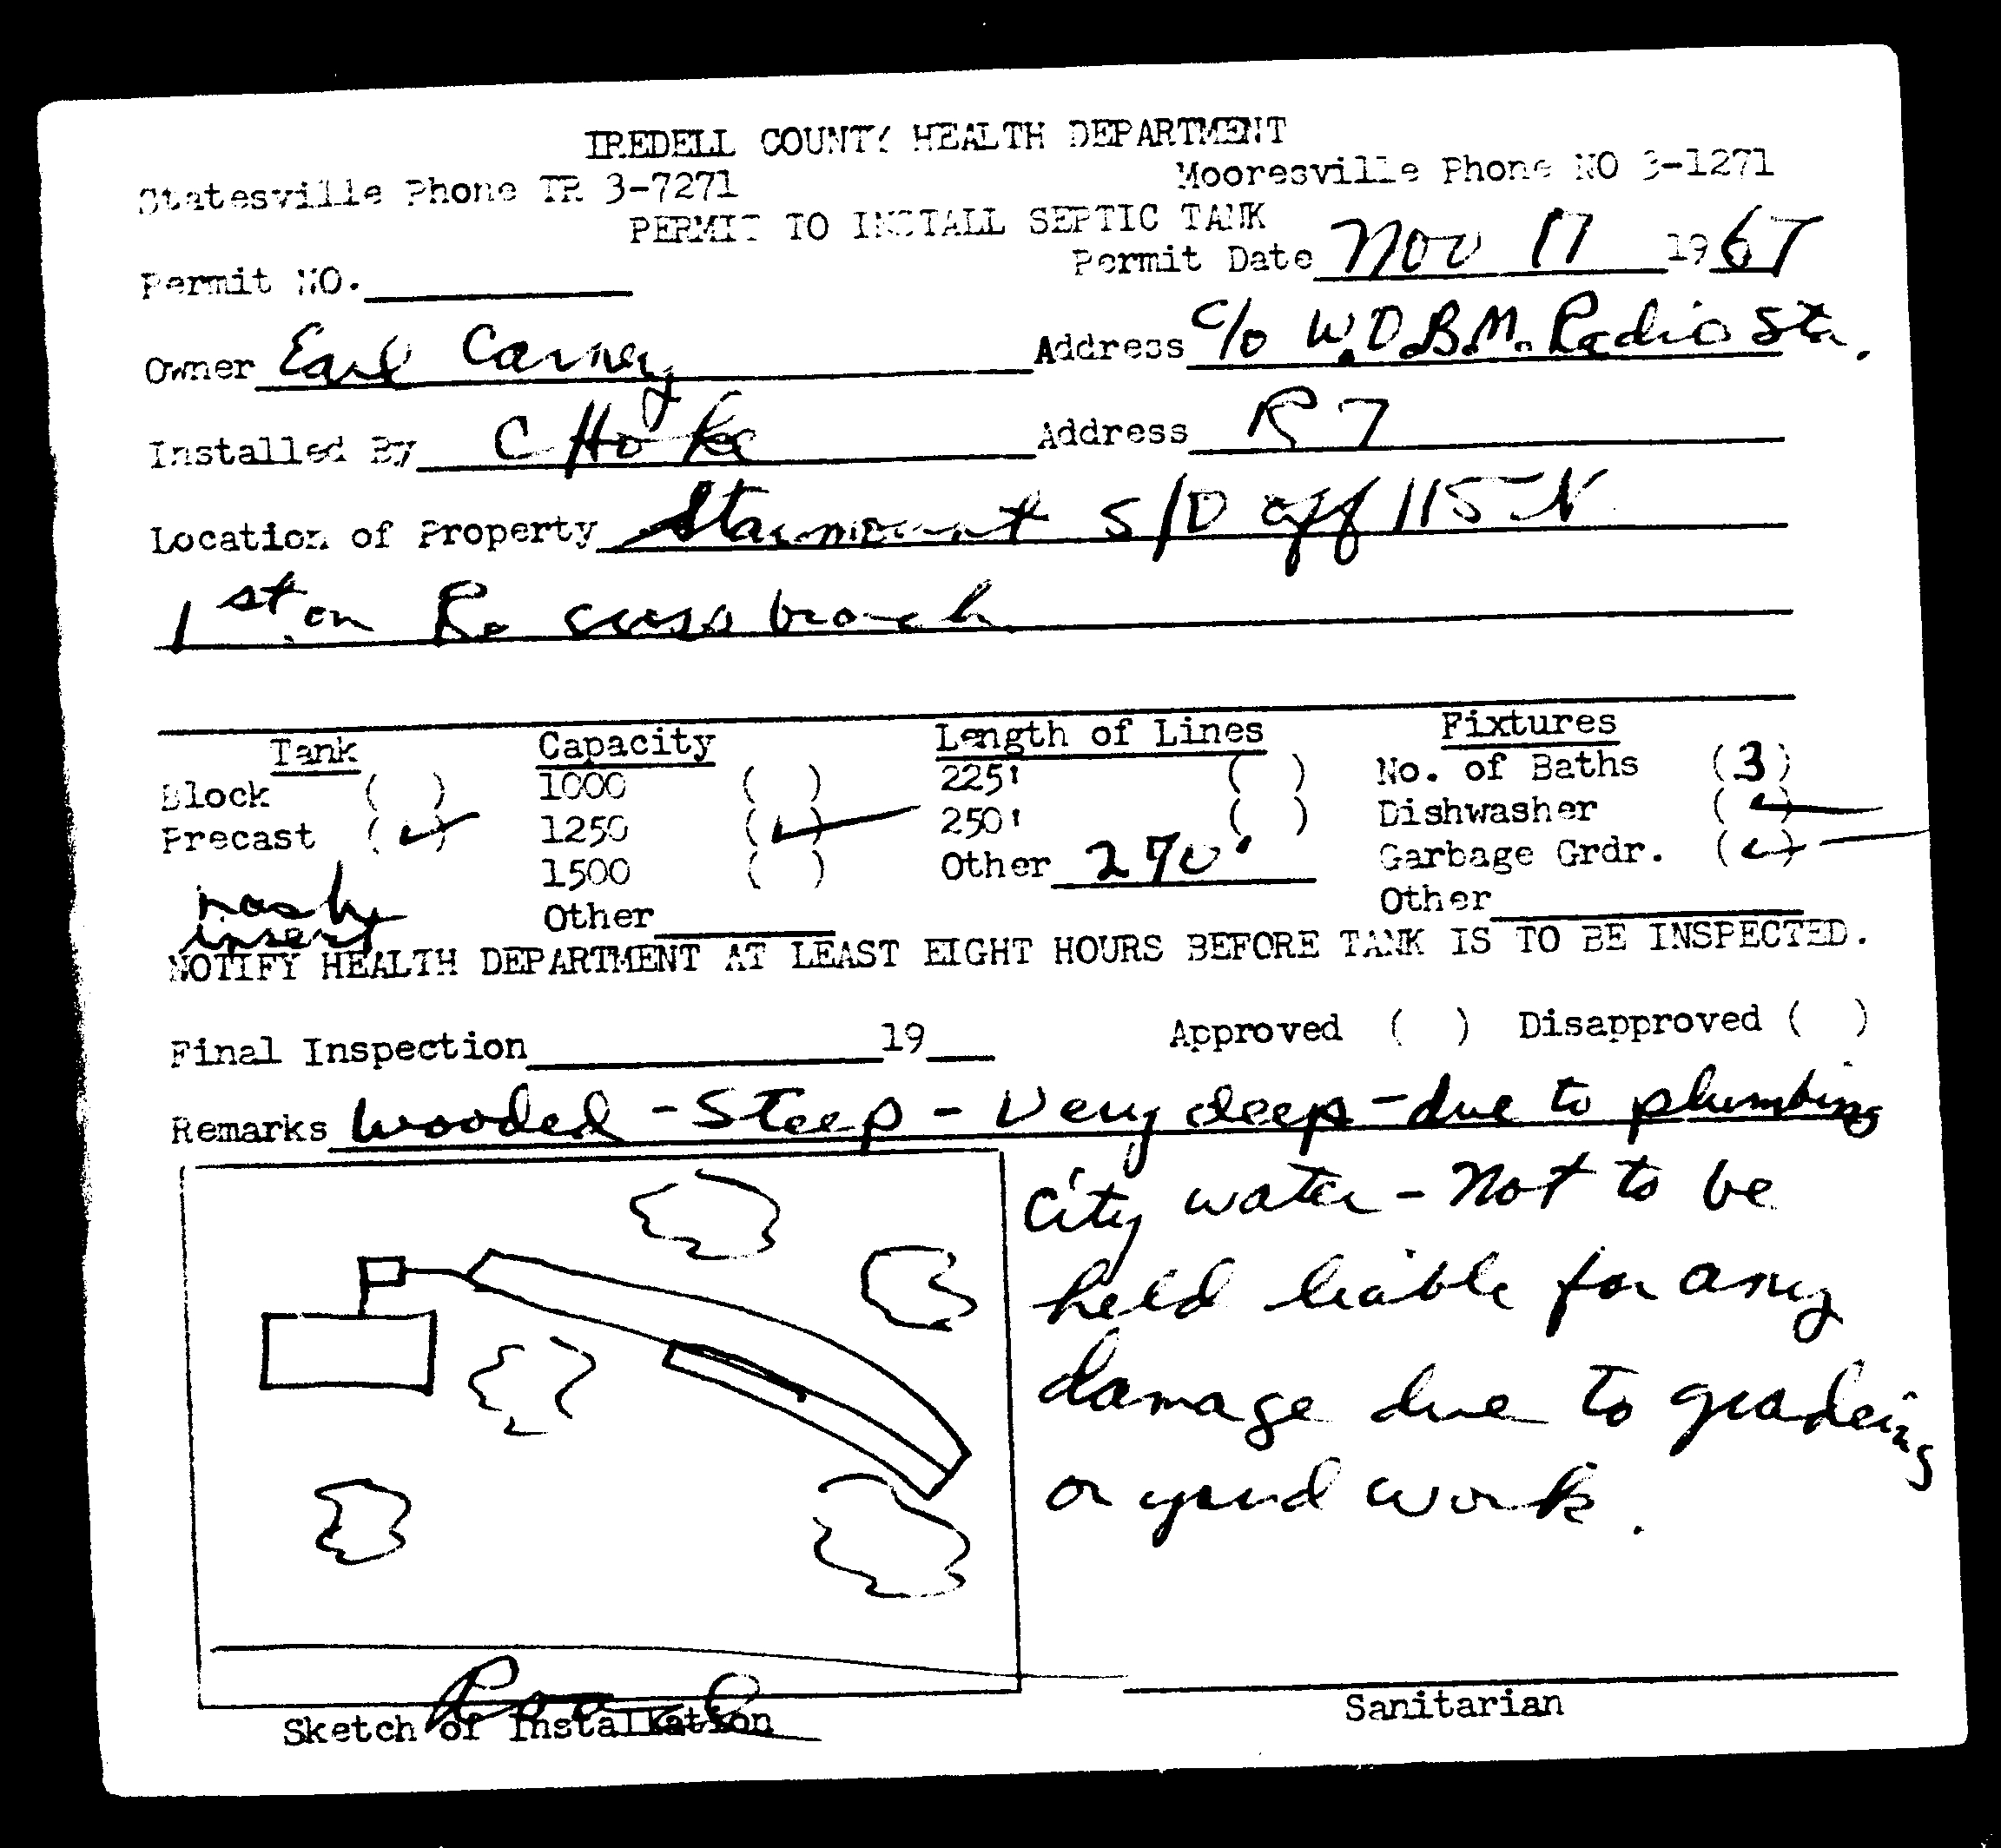 IREDELL COUNTY HEALTH DEPARTMENT
Statesville Phone TR 3-7271 Mooresville Phone NO 3-1271
PERMIT TO INSTALL SEPTIC TANK
Permit NO. Permit Date Nov 17 1967
Owner Earl Carney Address c/o W.D.B.M. Radio Sta.
Installed By C Hoke Address R 7
Location of Property Starmount S/D off 115 N
1st on R. cross branch
Tank Capacity Length of Lines Fixtures
Block ( ) 1000 ( ) 225' ( ) No. of Baths (3)
Precast (✓) 1250 (✓) 250' ( ) Dishwasher (✓)
1500 ( ) Other 270' Garbage Grdr. (✓)
insert Other Other
NOTIFY HEALTH DEPARTMENT AT LEAST EIGHT HOURS BEFORE TANK IS TO BE INSPECTED.
Final Inspection 19 Approved ( ) Disapproved ( )
Remarks Wooded - Steep - Very deep - due to plumbing
City water - Not to be
held liable for any
damage due to gradeing
or yard work.
Road
Sketch of Installation Sanitarian